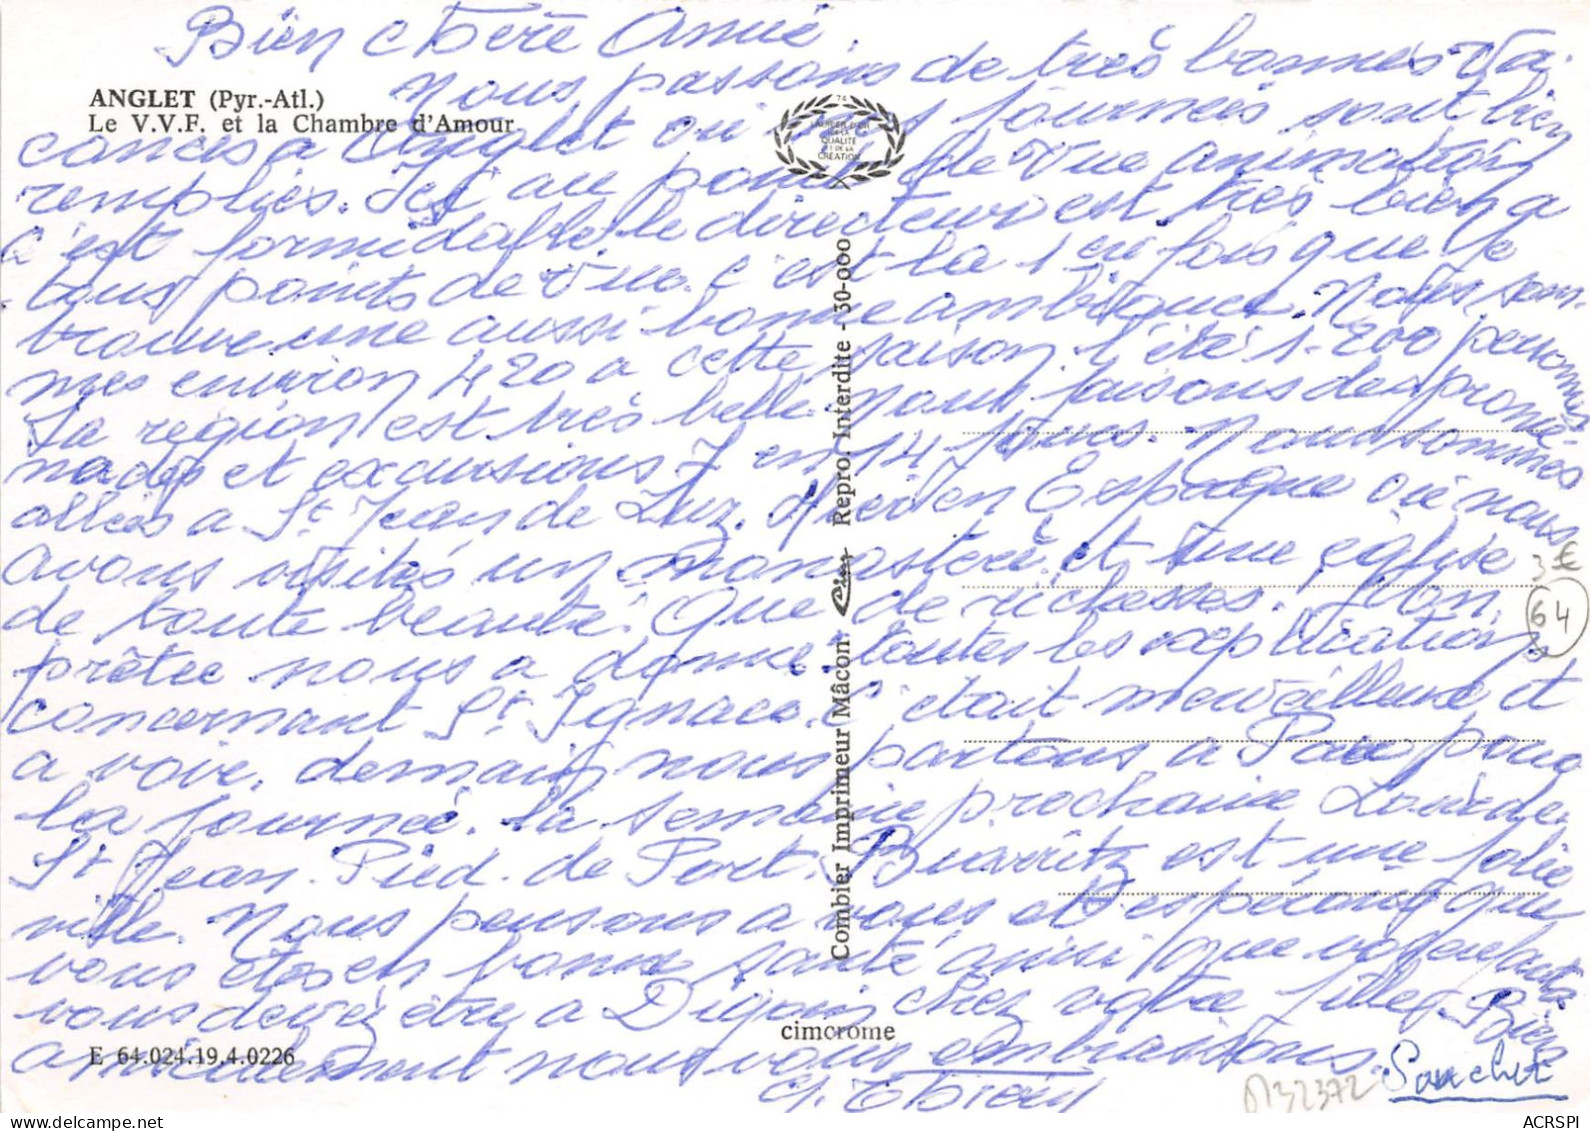 Bien chère Amie.
Nous passons de très bonnes va-
ANGLET (Pyr.-Atl.)
Le V.V.F. et la Chambre d'Amour
cances a Anglet ou les journées sont bien
remplies. Ici au point de vue animation
c'est formidable le directeur est très bien a
tous points de vue. c'est la 1 en fois que je
trouve une aussi bonne ambiance. Nous som-
mes environ 420 a cette saison l'été 1.200 personnes
La region est très belle. nous faisons des prome-
nades et excursions 7 en 14 jours. Nous sommes
allées a St Jean de Luz. Hier en Espagne ou nous
avons visités un monastère et une église
de toute beauté. Que de richesses. Mon
prêtre nous a donné toutes les explications
concernant St Ignace. C'était merveilleux et
a voir. demain nous partons a Pau pour
la journée. la semaine prochaine Lourdes
St Jean. Pied. de Port. Biarritz est une jolie
ville. Nous pensons a vous et espérons que
vous êtes en bonne santé ainsi que vos enfants
vous devez être a Digoin chez votre fille. Bien
amicalement nous vous embrassons.
LAURIER D'OR
DE LA
QUALITÉ
ET DE LA
CRÉATION
76
Combier Imprimeur Mâcon Cim Repro. Interdite - 30-000
cimcrome
E 64.024.19.4.0226
3€
64
132372
ACRSPI